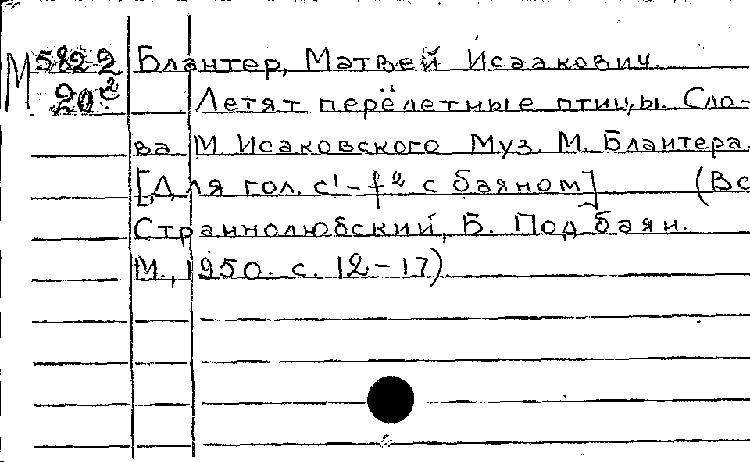 М 582-2 Блантер, Матвей Исаакович.
20² Летят перелётные птицы. Сло-
ва М. Исаковского Муз. М. Блантера.
[Для гол. c¹-f² с баяном] (Вс
Страннолюбский, Б. Под баян.
М., 1950. с. 12-17)